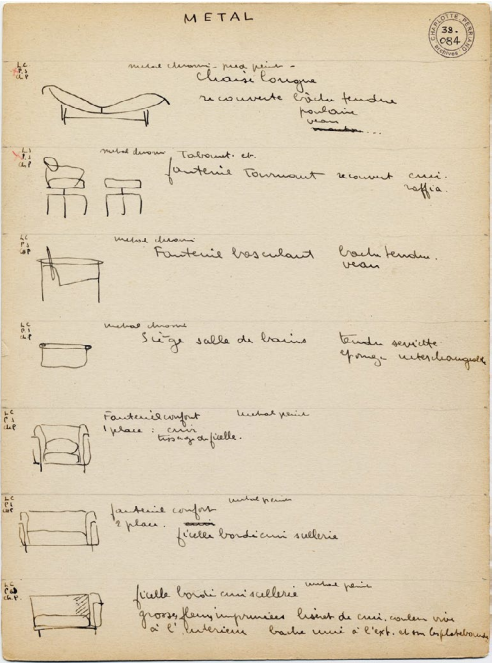 METAL
CHARLOTTE PERRIAND
38.
084
archives
LC
P.J
Ch.P
metal chromé - pied peint -
Chaise longue
recouverte bâche tendue
poulain
veau
LC
P.J
Ch.P
metal chromé Tabouret et
fauteuil tournant recouvert cuir.
raffia.
LC
P.J
Ch.P
metal chromé
Fauteuil basculant bache tendue.
veau
LC
P.J
Ch.P
metal chromé
Siège salle de bains tendu serviette
éponge interchangeable
LC
P.J
Ch.P
Fauteuil confort metal peint
1 place : cuir
tissage de ficelle.
LC
P.J
Ch.P
metal peint
fauteuil confort
2 place.
ficelle bordi cuir sellerie
LC
Ch.P.
ficelle bordi cuir sellerie metal peint
grosses fleurs imprimées liseret de cuir. couleur vive
à l'intérieur bache unie à l'ext. et sur les platebandes